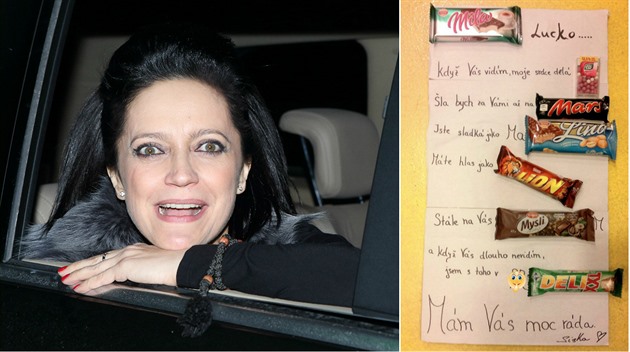 Milka Lucko.....
když Vás vidím, moje srdce dělá
Šla bych za Vámi až na Mars
Jste sladká jako Ma
Máte hlas jako LION
Stále na Vás Mysli M
a když Vás dlouho nevidím,
jsem s toho v DELI XXL
Mám Vás moc ráda.